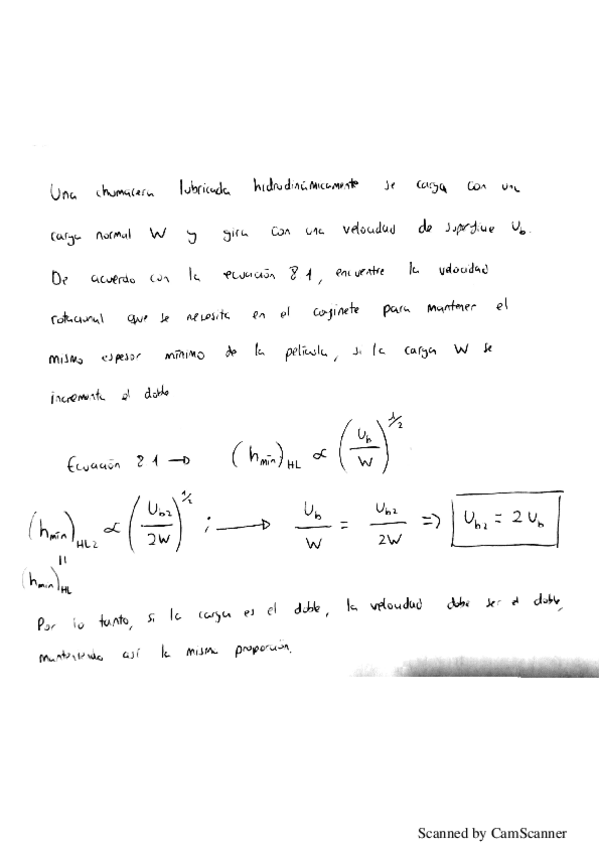 Una chumacera lubricada hidrodinámicamente se carga con una
carga normal W y gira con una velocidad de superficie U_b.
De acuerdo con la ecuación 8 1, encuentre la velocidad
rotacional que se necesita en el cojinete para mantener el
mismo espesor mínimo de la película, si la carga W se
incrementa el doble
Ecuación 8 1 → (h_min)_HL ∝ (U_b/W)^1/2
(h_min)_HL2 ∝ (U_b2/2W)^1/2 ; → U_b/W = U_b2/2W => U_b2 = 2 U_b
=
(h_min)_HL
Por lo tanto, si la carga es el doble, la velocidad debe ser el doble,
manteniendo así la misma proporción.
Scanned by CamScanner